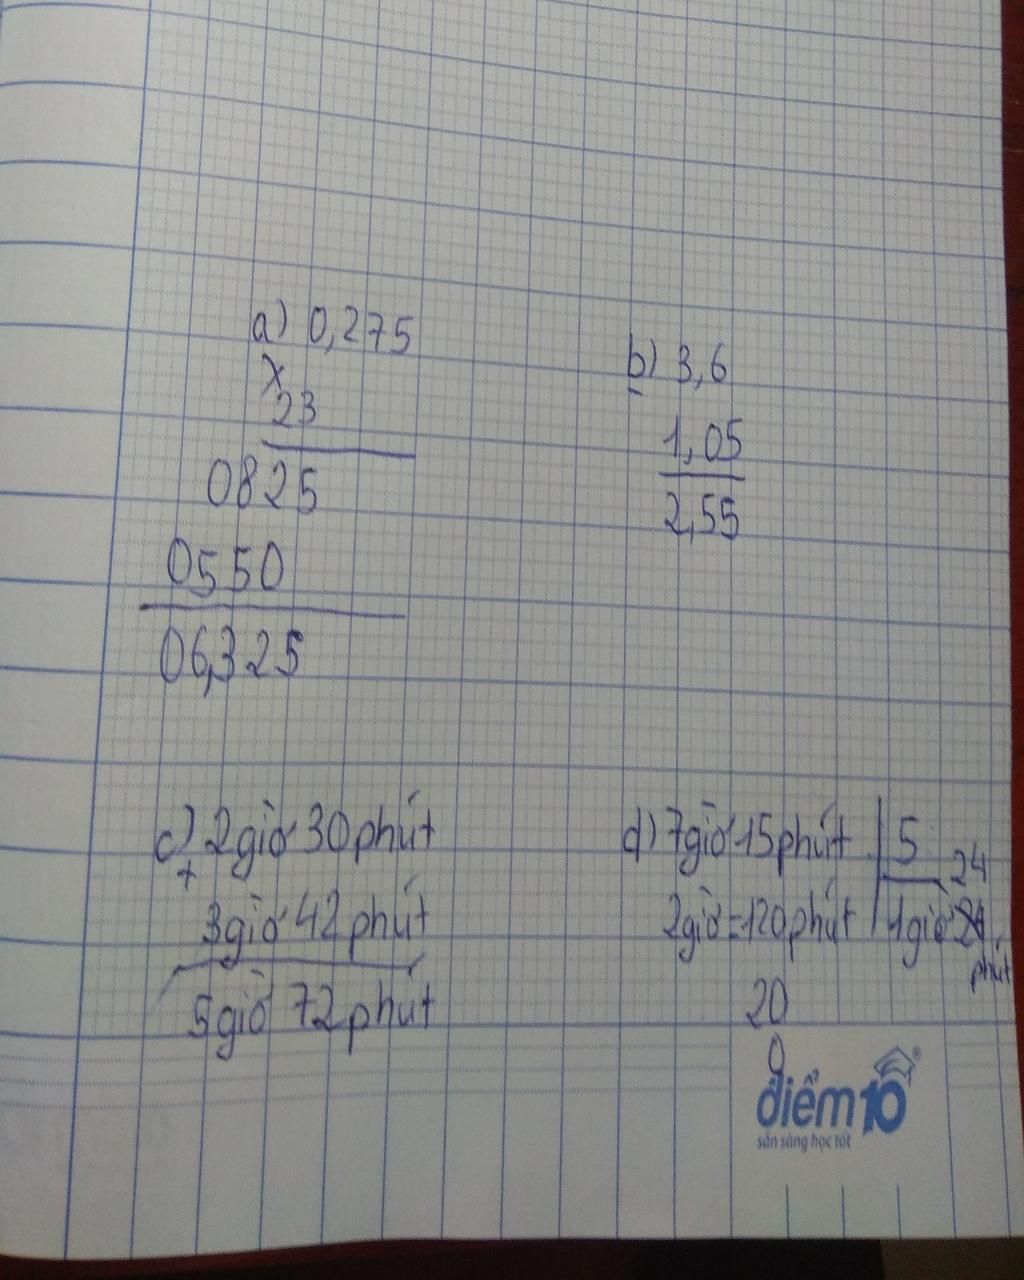 a) 0,275
x
23
0825
0550
06,325
b) 3,6
-
1,05
2,55
c) 2giờ 30phút
+
3giờ 42phút
5giờ 72phút
d) 7giờ 15phút 5
24
2giờ=120phút 1giờ
phút
20
0
điểm10
sẵn sàng học tốt